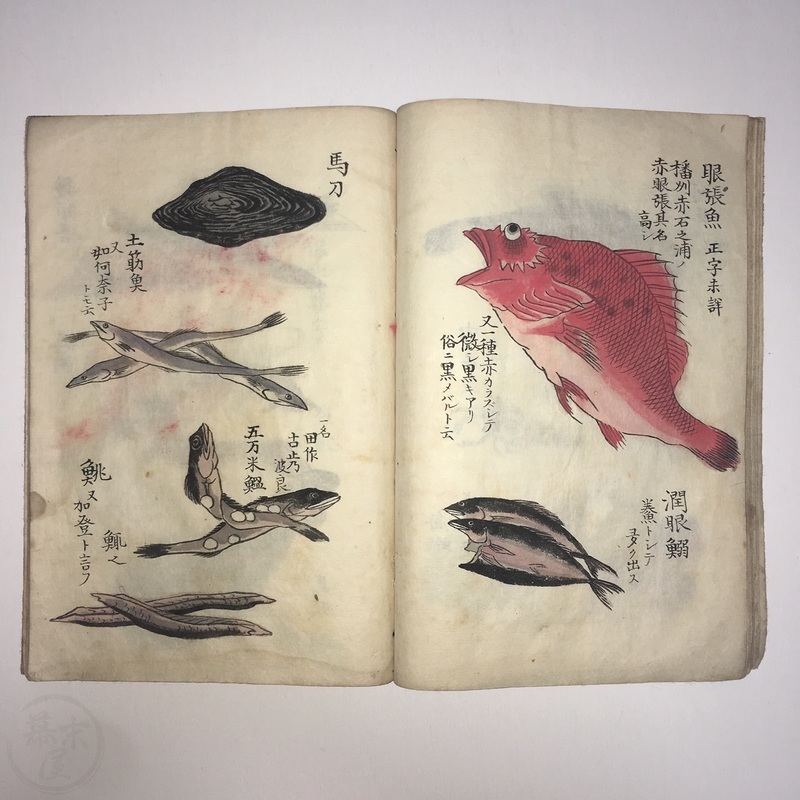 眼張魚 正字未詳
播州赤石之浦ノ
赤眼張其名
高シ
又一種赤カラズシテ
微シ黒キアリ
俗ニ黒メバルト云
潤眼鰯
トシテ
多ク出ス
馬刀
土筋魚
又
如何奈子
トモ云
一名
田作
古止乃
波良
五万米鰮
鮡又
加登ト言フ
幕末屋